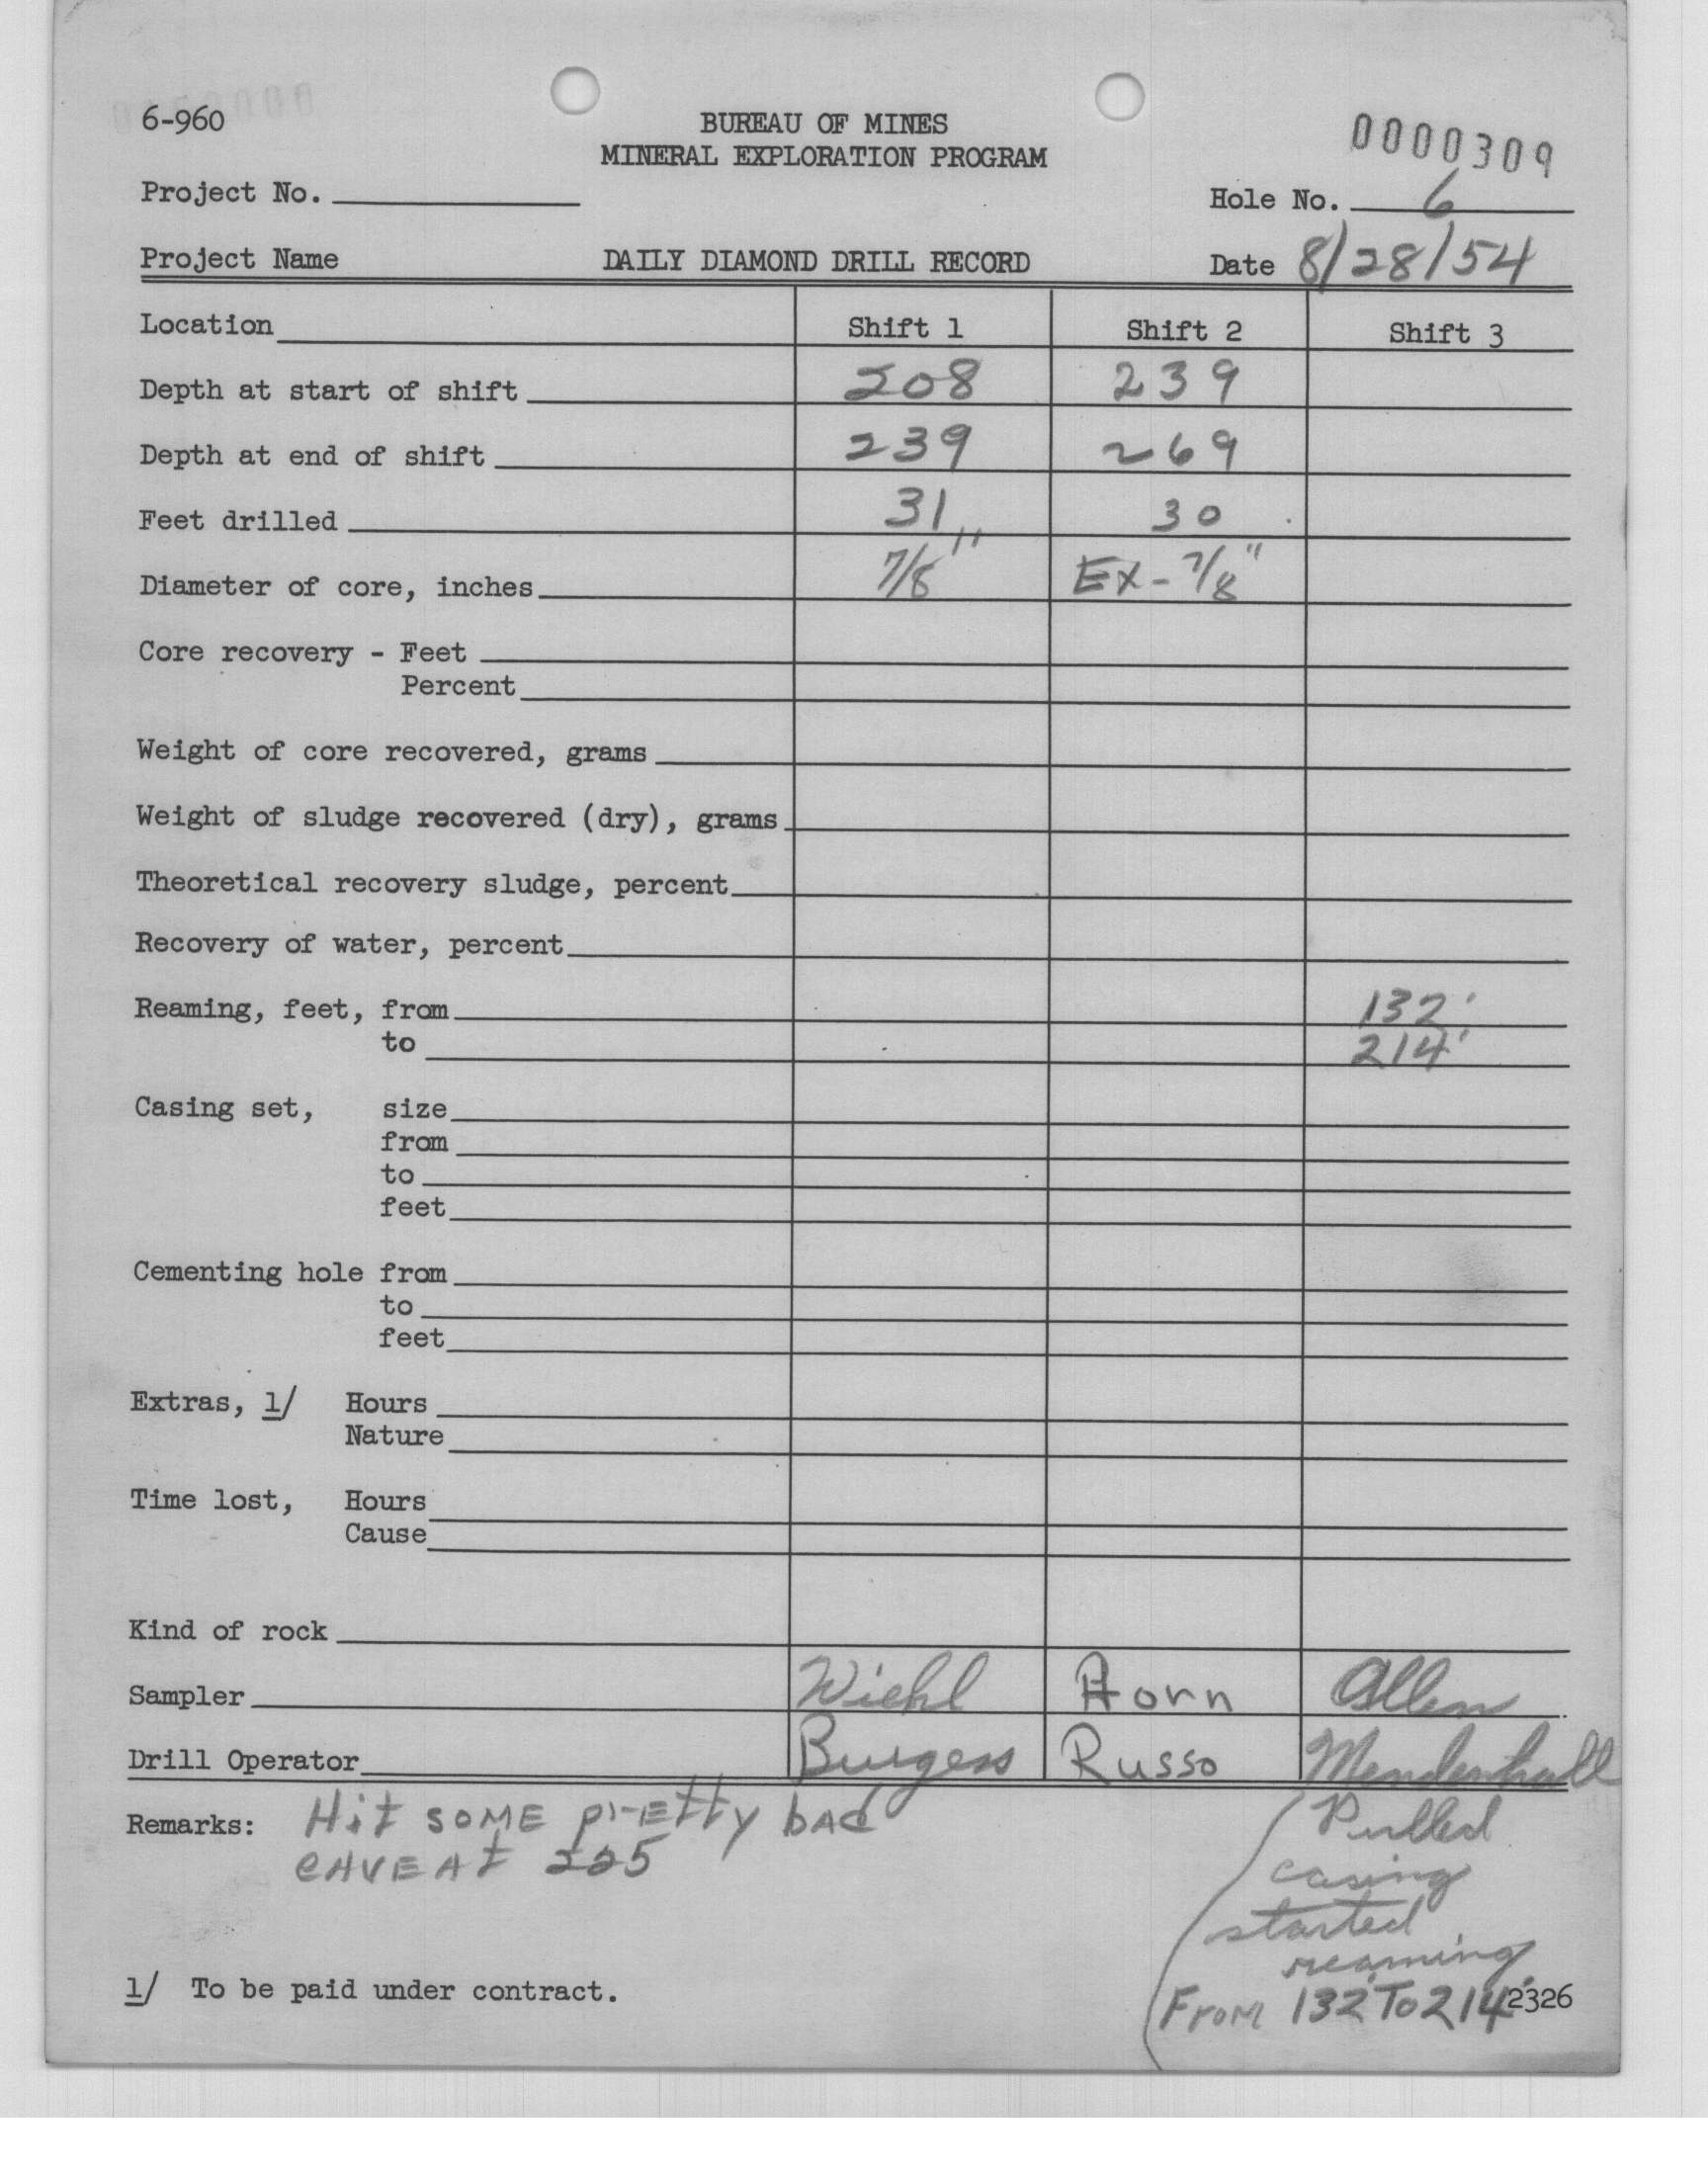 6-960
BUREAU OF MINES
MINERAL EXPLORATION PROGRAM
0000309
Project No.
Hole No. 6
Project Name DAILY DIAMOND DRILL RECORD Date 8/28/54
Location Shift 1 Shift 2 Shift 3
Depth at start of shift 208 239
Depth at end of shift 239 269
Feet drilled 31 30
Diameter of core, inches 7/8" EX-7/8"
Core recovery - Feet
Percent
Weight of core recovered, grams
Weight of sludge recovered (dry), grams
Theoretical recovery sludge, percent
Recovery of water, percent
Reaming, feet, from 132'
to 214'
Casing set, size
from
to
feet
Cementing hole from
to
feet
Extras, 1/ Hours
Nature
Time lost, Hours
Cause
Kind of rock
Sampler Wiehl Horn Allen
Drill Operator Burgess Russo Mendenhall
Remarks: Hit SOME pretty bad
CAVE At 225
Pulled
casing
started
reaming
From 132' To 214'
1/ To be paid under contract.
2326